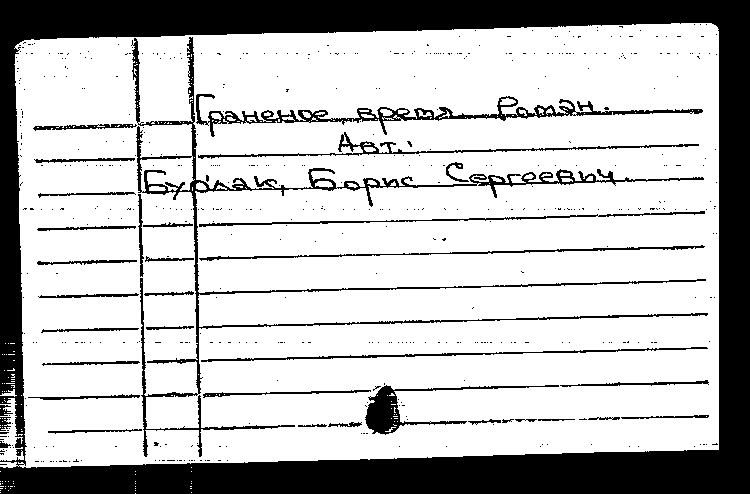 Граненое время. Роман.
Авт.:
Бурлак, Борис Сергеевич.